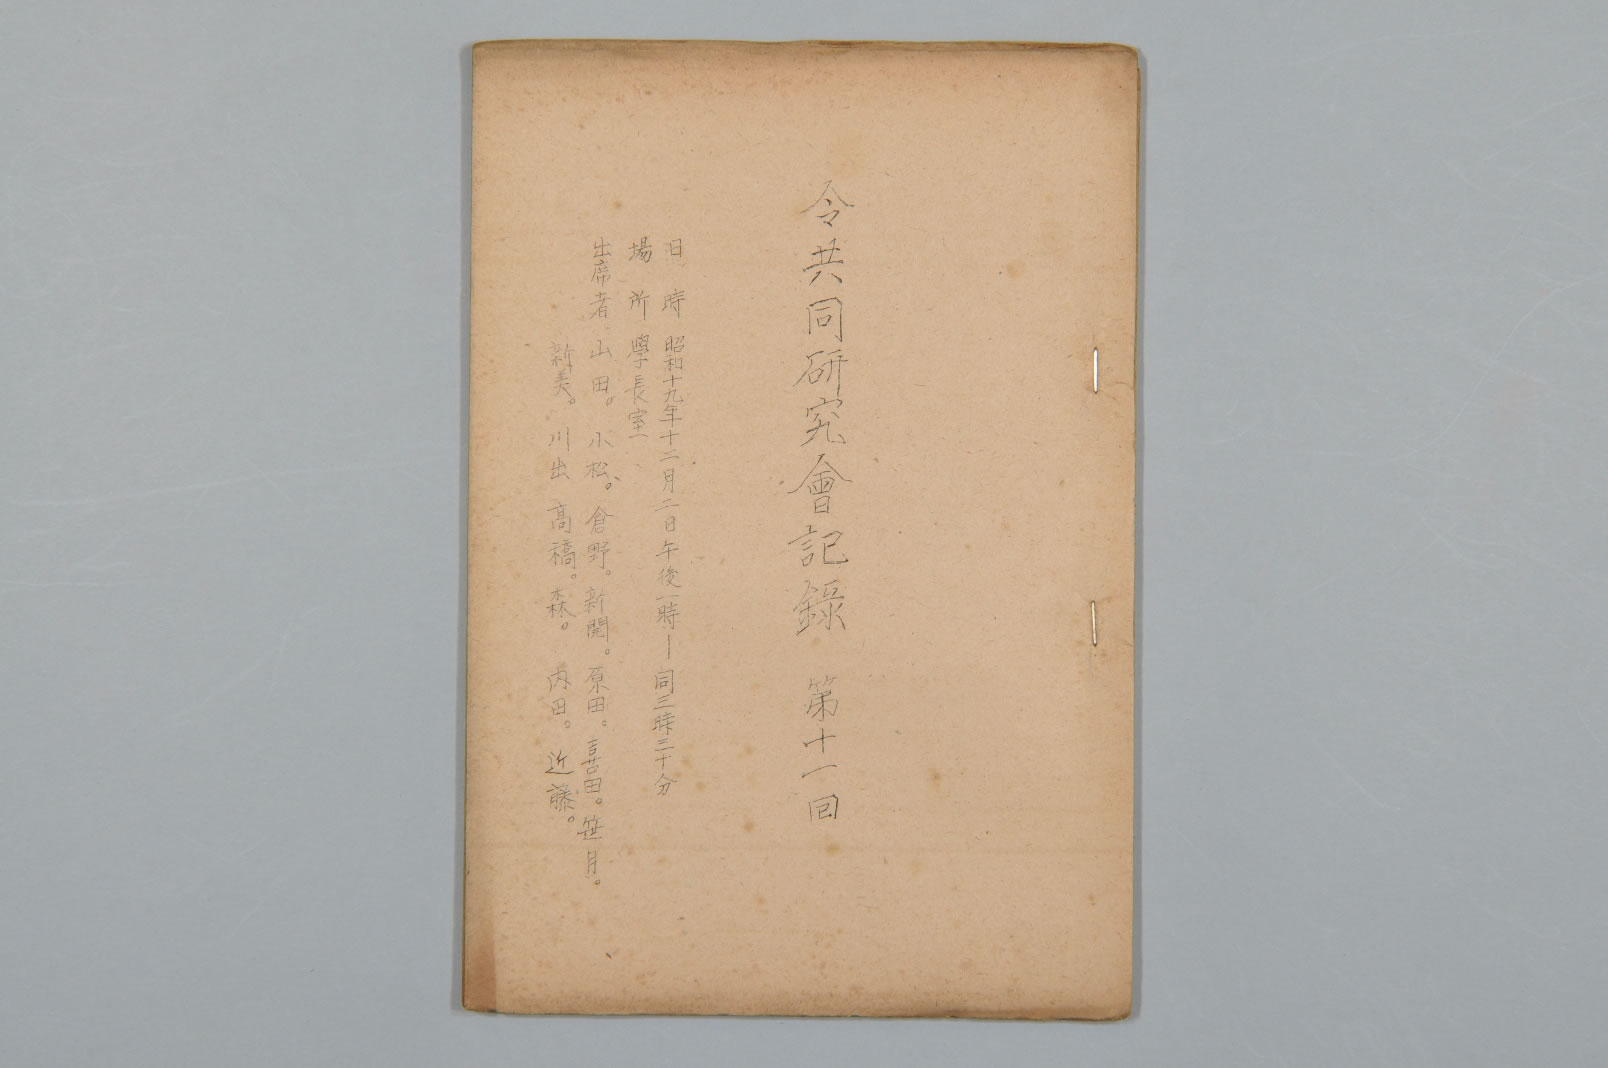 令共同研究會記錄　第十一回
日　時　昭和十九年十二月二日午後一時―同三時三十分
場　所　學長室
出席者　山田。小松。倉野。新開。原田。喜田。笹月。
新美。川出　高橋。森。内田。近藤。